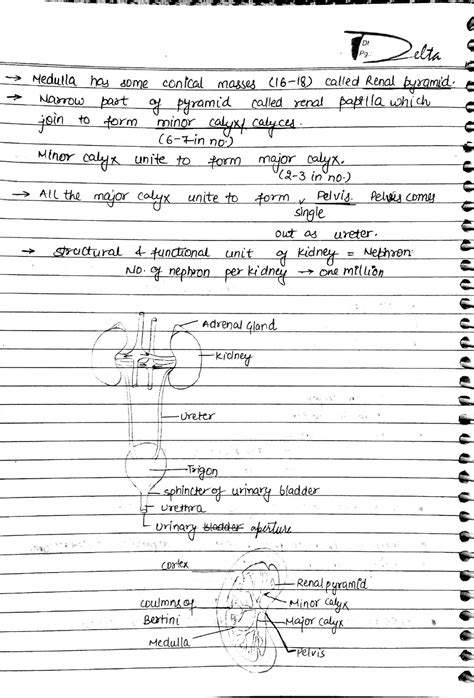 Dt.
Pg.
Delta
→ Medulla has some conical masses (16-18) called Renal pyramid.
→ Narrow part of pyramid called renal papilla which
join to form minor calyx/calyces.
(6-7 in no.)
Minor calyx unite to form major calyx.
(2-3 in no.)
→ All the major calyx unite to form single Pelvis. Pelvis comes
out as ureter.
→ structural & functional unit of kidney = Nephron
No. of nephron per kidney → one million
Adrenal Gland
Kidney
Ureter
Trigon
sphincter of urinary bladder
urethra
urinary bladder aperture
cortex
Renal pyramid
Minor calyx
coulmns of
Bertini
Major calyx
Medulla
Pelvis